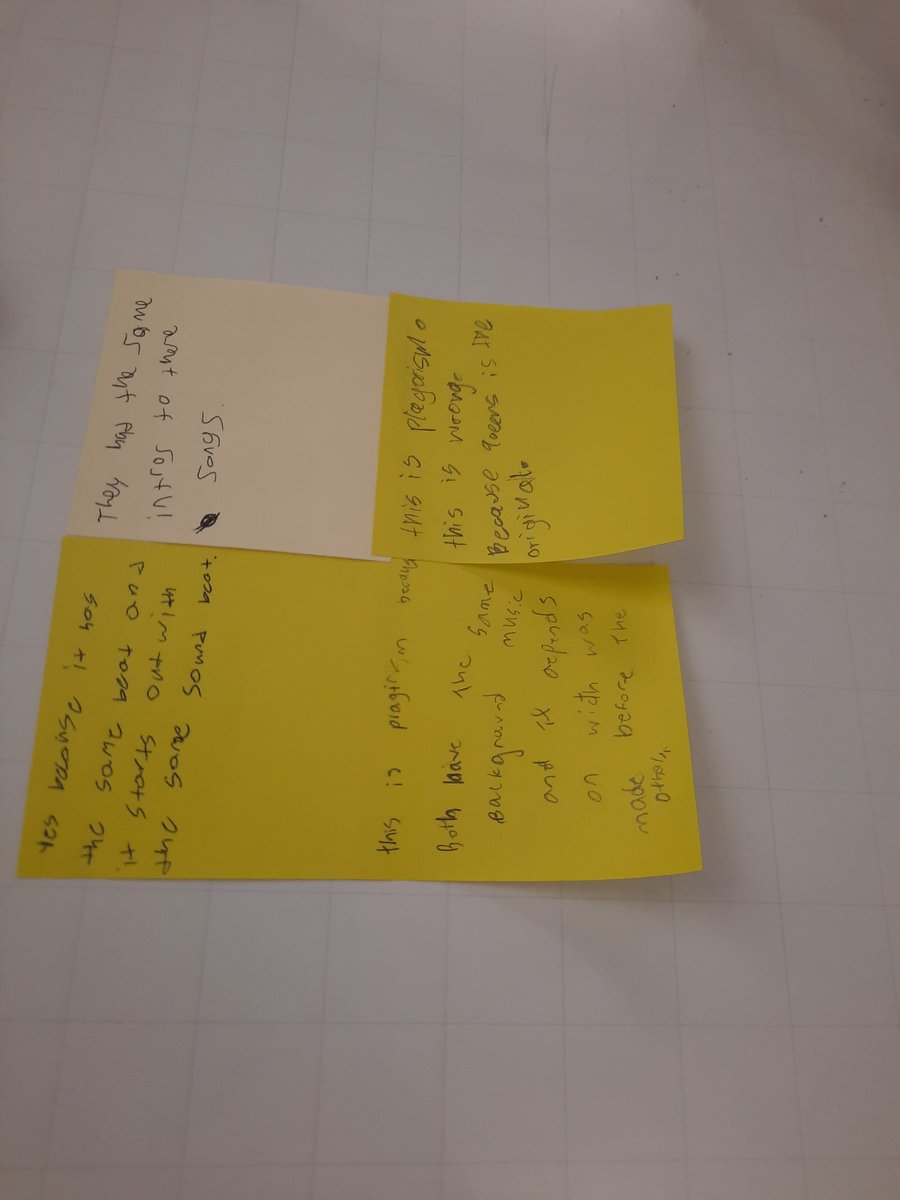 Yes because it has
the same beat and
it starts out with
the same sound beat.
They had the same
intros to there
songs.
this is
because
Both have the same
Background music
and it depends
on wich was
made before the
other.
this is plagarism.
this is wrong.
Because queens is the
original.